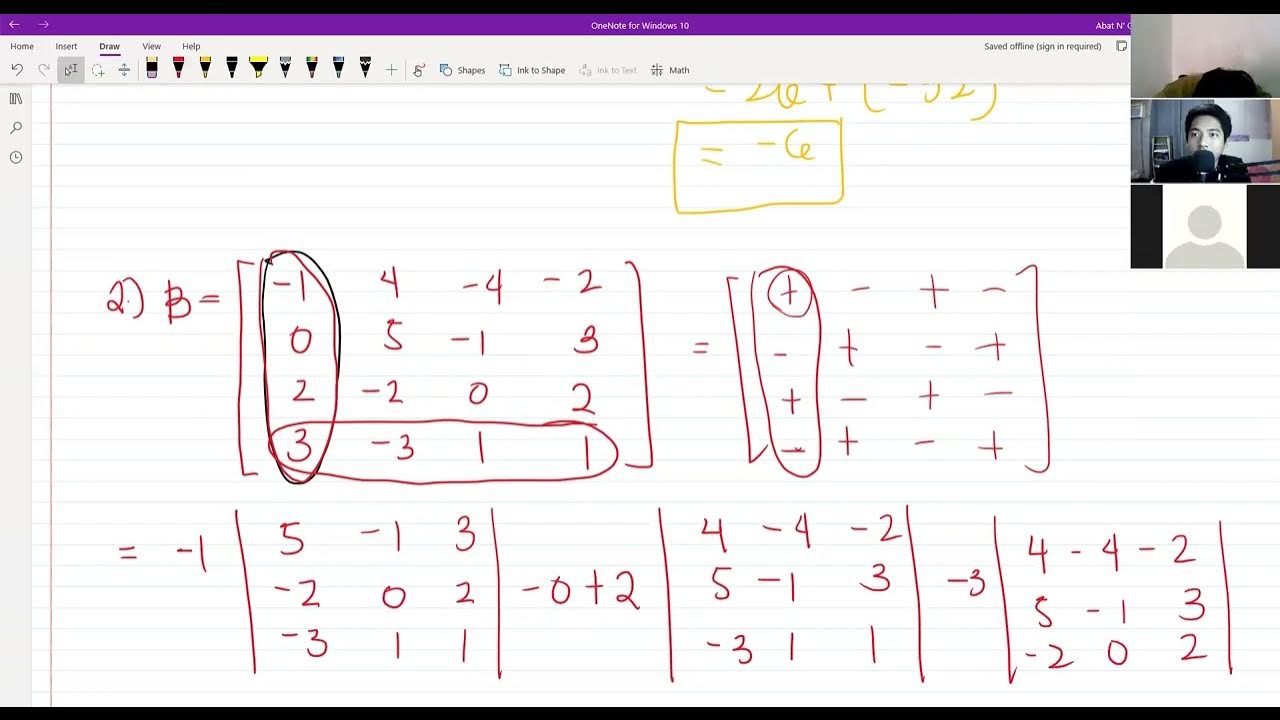 OneNote for Windows 10
Abat N'
Home Insert Draw View Help
Saved offline (sign in required)
Shapes Ink to Shape Ink to Text Math
= -6
2.) B = [ -1 4 -4 -2 ] = [ + - + - ]
0 5 -1 3 - + - +
2 -2 0 2 + - + -
3 -3 1 1 - + - +
= -1 | 5 -1 3 | -0+2 | 4 -4 -2 | -3 | 4 -4 -2 |
-2 0 2 5 -1 3 5 -1 3
-3 1 1 -3 1 1 -2 0 2